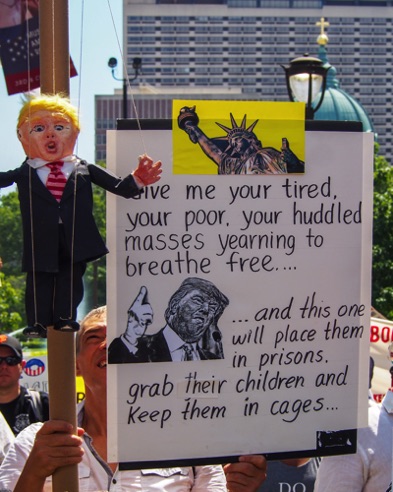 Give me your tired,
your poor, your huddled
masses yearning to
breathe free....
...and this one
will place them
in prisons.
grab their children and
keep them in cages...
BO
DO